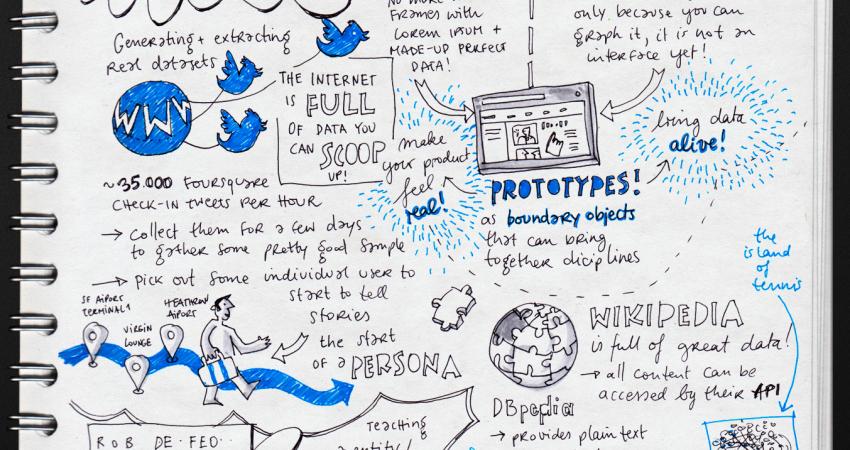 Generating + extracting
real datasets
WWW
THE INTERNET
IS FULL
OF DATA YOU
CAN SCOOP
UP!
FRAMES WITH
LOREM IPSUM +
MADE-UP PERFECT
DATA!
only because you can
graph it, it is not an
interface yet!
make
your product
feel
real!
bring data
alive!
PROTOTYPES!
as boundary objects
that can bring
together diciplines
~35.000 FOURSQUARE
CHECK-IN TWEETS PER HOUR
→ collect them for a few days
to gather some pretty good sample
→ pick out some individual user to
start to tell
stories
the start
of a PERSONA
SF AIPORT
TERMINAL 1
VIRGIN
LOUNGE
HEATHROW
AIPORT
the
island
of
tennis
WIKIPEDIA
is full of great data!
→ all content can be
accessed by their API
DBpedia
→ provides plain text
ROB DE·FEO
TEACHING